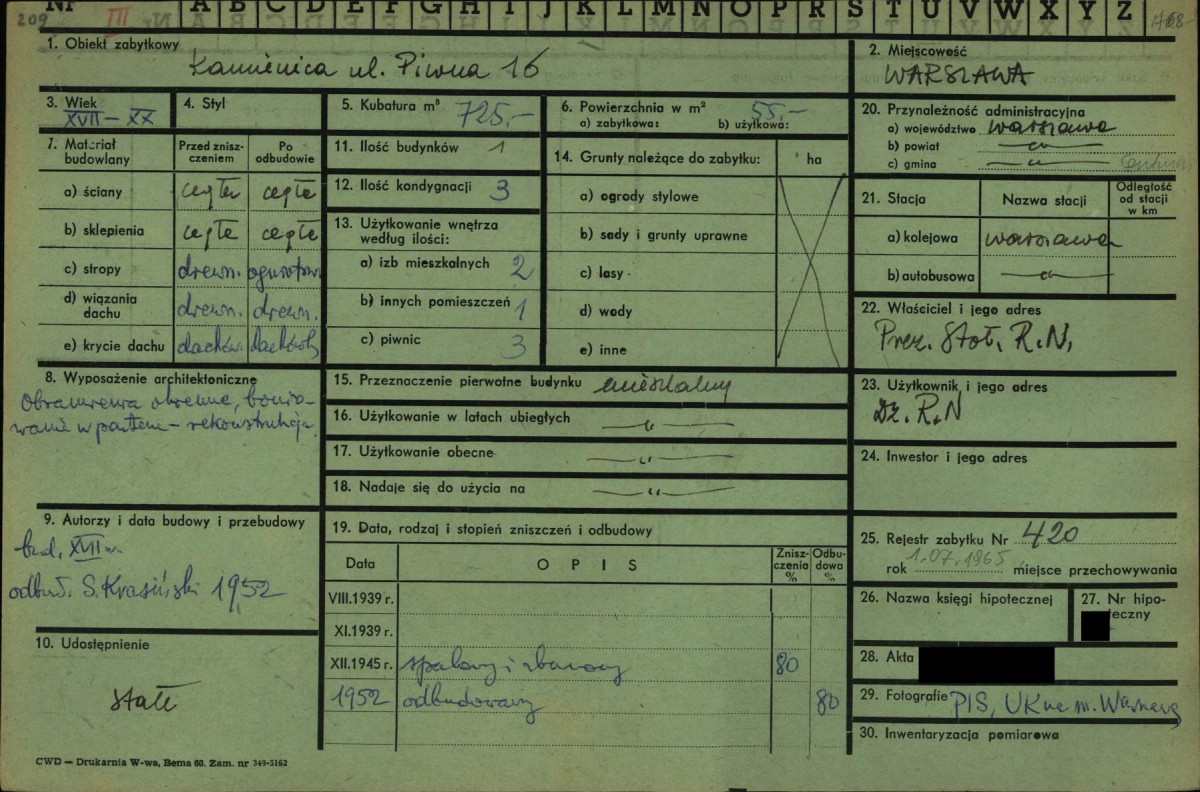 209 III A B C D E F G H I J K L M N O P R S T U V W X Y Z
1. Obiekt zabytkowy
Kamienica ul. Piwna 16
2. Miejscowość
WARSZAWA
3. Wiek
XVII – XX
4. Styl
5. Kubatura m³ 725,-
6. Powierzchnia w m² 55,-
a) zabytkowa: b) użytkowa:
7. Materiał budowlany
Przed zniszczeniem
Po odbudowie
a) ściany cegła cegła
b) sklepienia cegła cegła
c) stropy drewn.
d) wiązania dachu drewn. drewn.
e) krycie dachu dachów. dachówk
8. Wyposażenie architektoniczne
Obramienia okienne, bonio-
wanie w parterze – rekonstrukcja.
9. Autorzy i data budowy i przebudowy
bud. XVII w.
odbud. S. Krasiński 1952
10. Udostępnienie
stałe
11. Ilość budynków 1
12. Ilość kondygnacji 3
13. Użytkowanie wnętrza
według ilości:
a) izb mieszkalnych 2
b) innych pomieszczeń 1
c) piwnic 3
14. Grunty należące do zabytku: ha
a) ogrody stylowe
b) sady i grunty uprawne
c) lasy
d) wody
e) inne
15. Przeznaczenie pierwotne budynku mieszkalny
16. Użytkowanie w latach ubiegłych — „ —
17. Użytkowanie obecne — „ —
18. Nadaje się do użycia na — „ —
19. Data, rodzaj i stopień zniszczeń i odbudowy
Data OPIS Zniszczenia % Odbudowa %
VIII.1939 r.
XI.1939 r.
XII.1945 r. spalony i zburzony 80
1952 odbudowany 80
20. Przynależność administracyjna
a) województwo warszawa
b) powiat — „ —
c) gmina — „ —
21. Stacja
Nazwa stacji
Odległość
od stacji
w km
a) kolejowa warszawa
b) autobusowa — „ —
22. Właściciel i jego adres
Prez. Stoł. R.N.
23. Użytkownik i jego adres
Dz. R.N
24. Inwestor i jego adres
25. Rejestr zabytku Nr 420
rok 1.07.1965 miejsce przechowywania
26. Nazwa księgi hipotecznej
27. Nr hipo-
teczny
28. Akta
29. Fotografie PIS, UK na m. Warszawę
30. Inwentaryzacja pomiarowa
CWD — Drukarnia W-wa, Bema 60. Zam. nr 349-5162